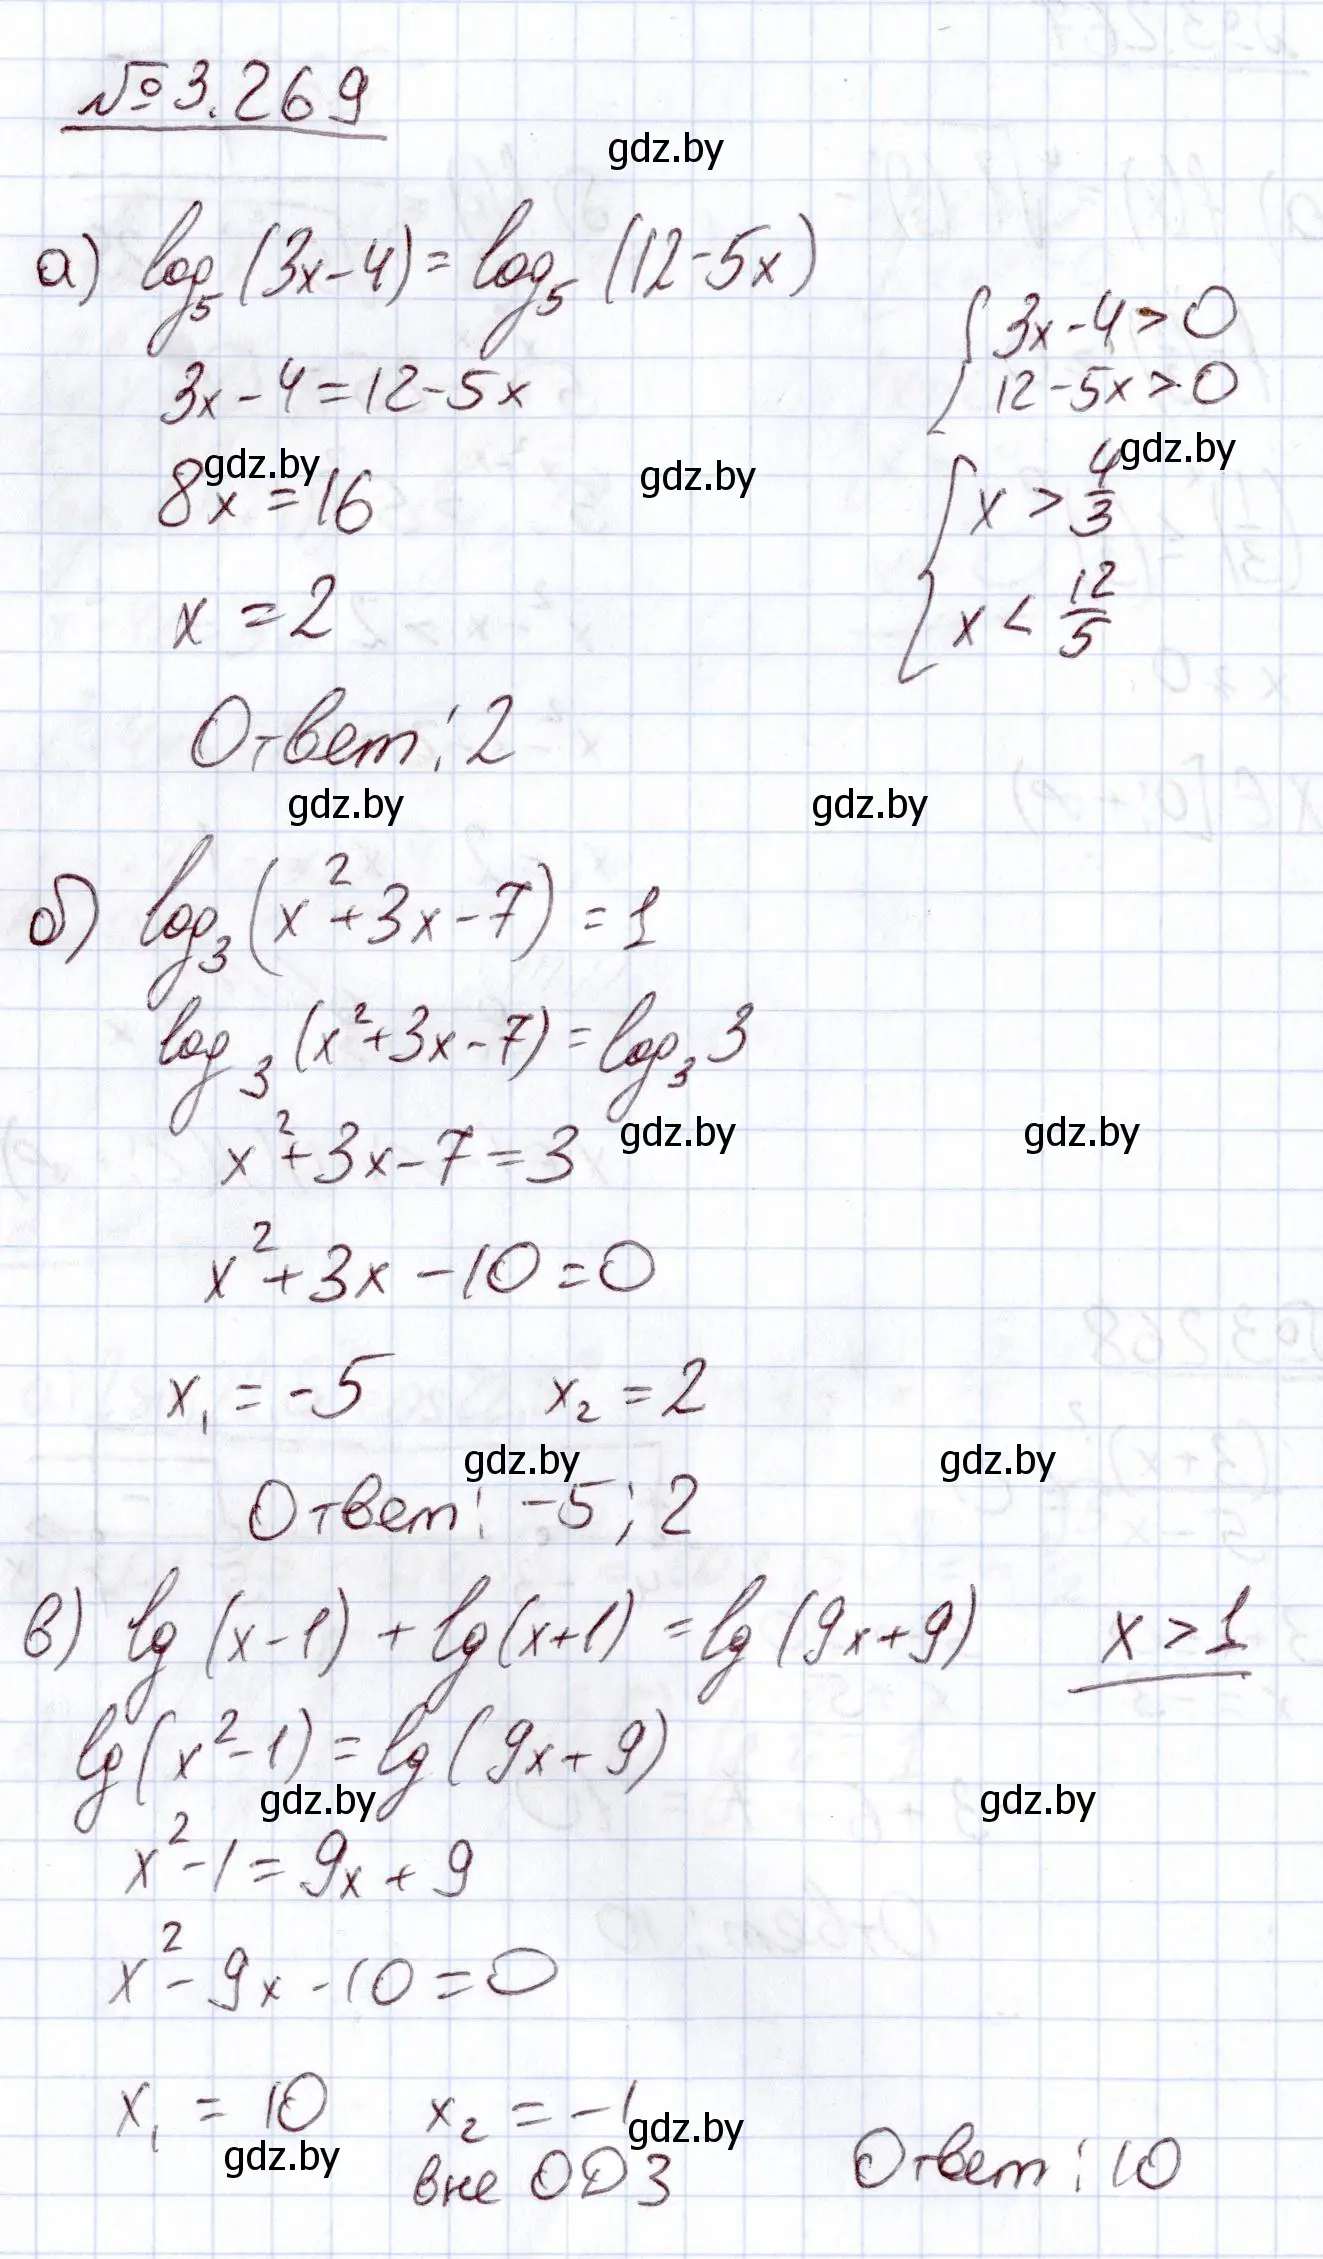 №3.269
gdz.by
а) log₅(3x-4)=log₅(12-5x)
{3x-4>0
12-5x>0
3x-4=12-5x
gdz.by
8x=16
gdz.by
gdz.by
{x > 4/3
x < 12/5
x = 2
Ответ: 2
gdz.by
gdz.by
б) log₃(x²+3x-7)=1
log₃(x²+3x-7)=log₃3
gdz.by
gdz.by
x²+3x-7=3
x²+3x-10=0
x₁=-5 x₂=2
gdz.by
gdz.by
Ответ: -5; 2
в) lg(x-1)+lg(x+1)=lg(9x+9) x>1
lg(x²-1)=lg(9x+9)
gdz.by
gdz.by
x²-1=9x+9
x²-9x-10=0
x₁=10 x₂=-1
gdz.by
gdz.by
вне ОДЗ
Ответ: 10